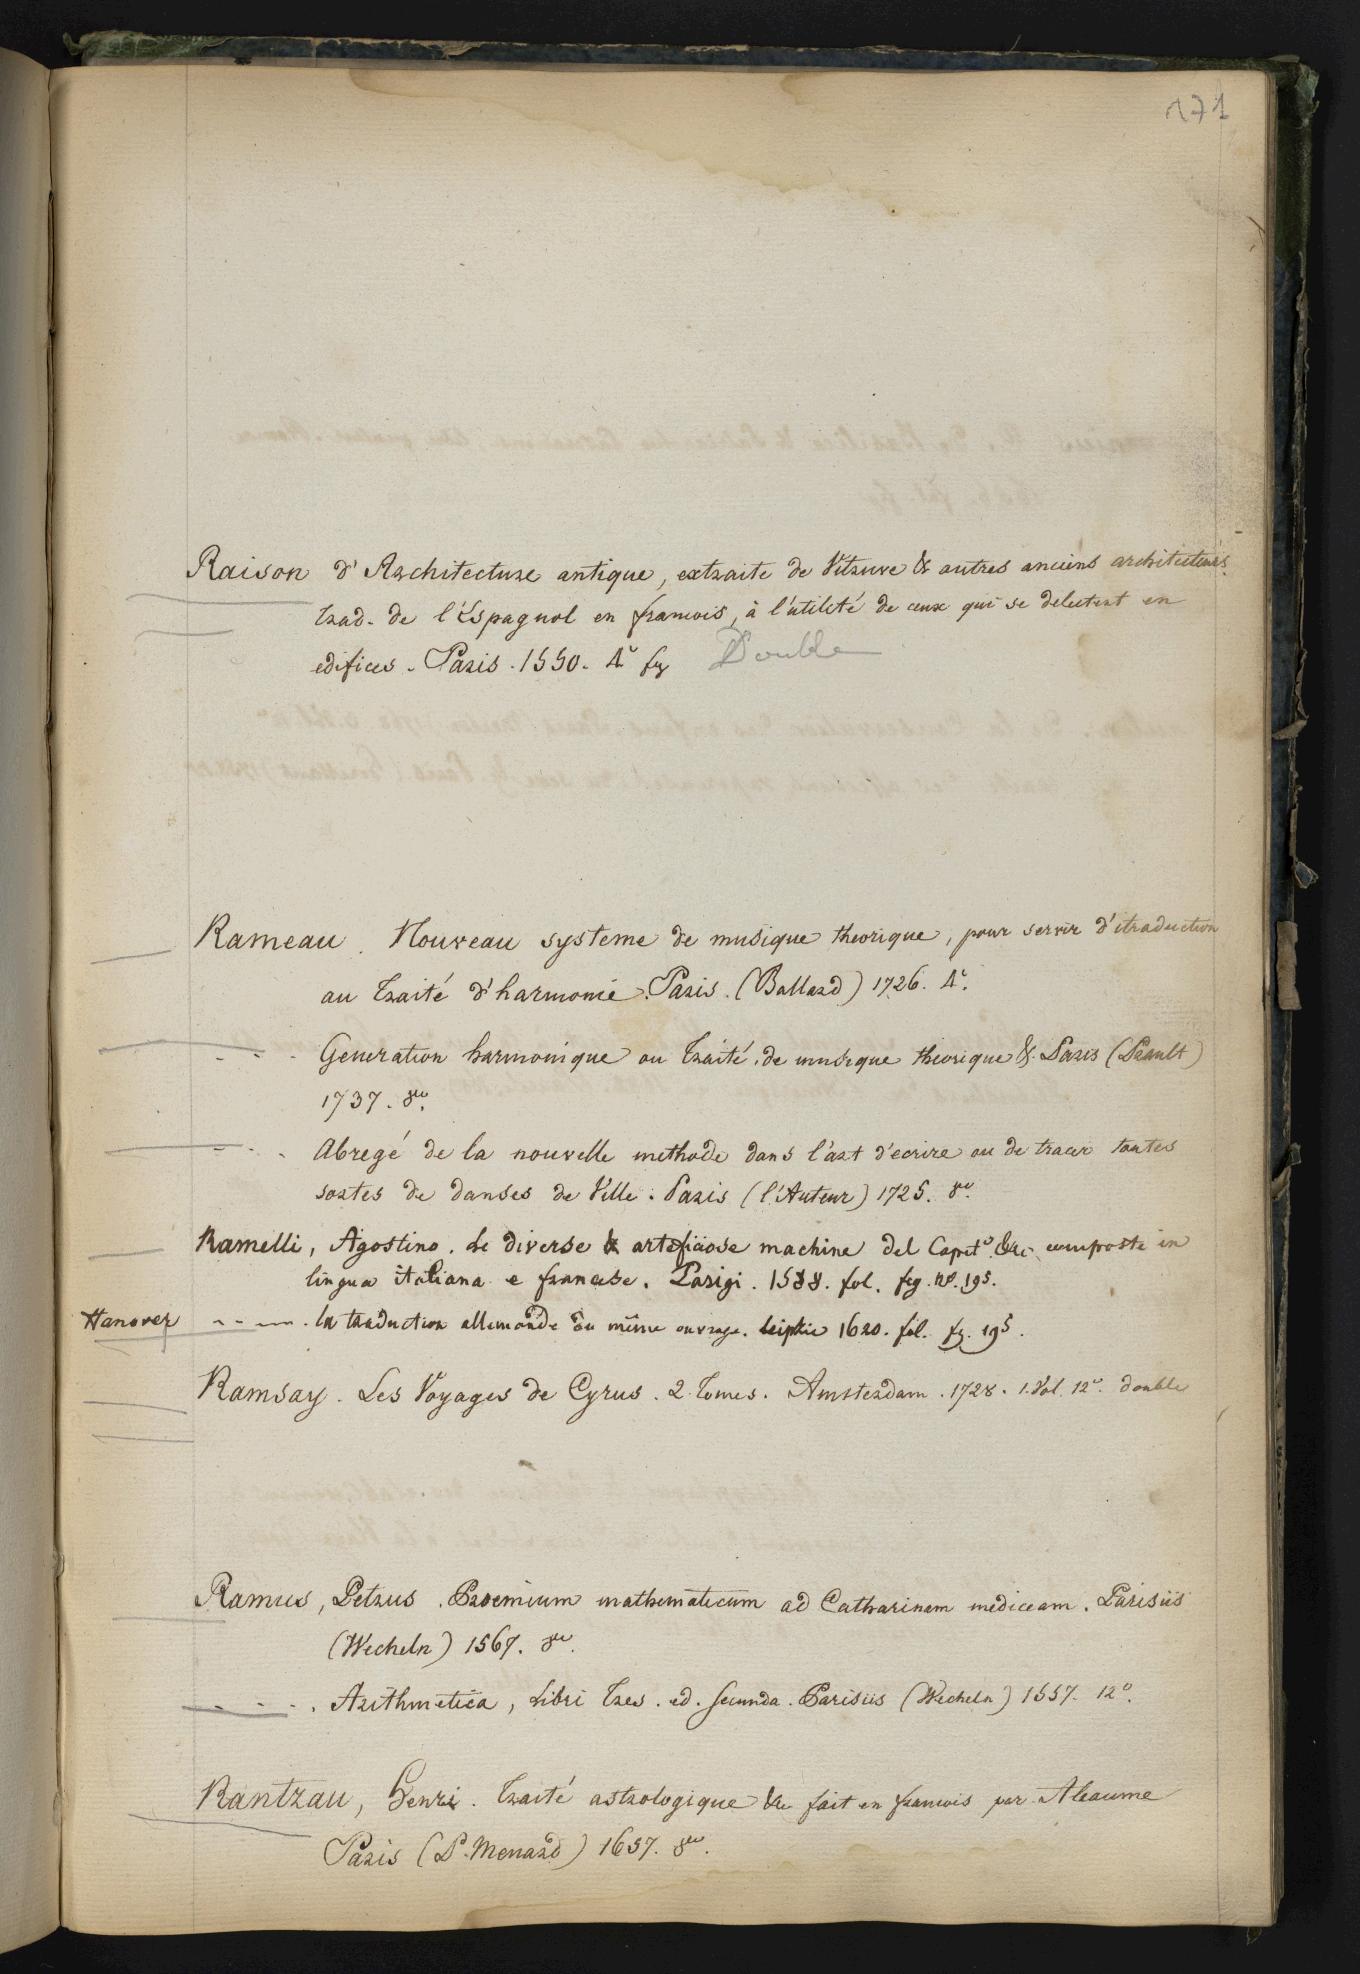 171
Raison d'Architecture antique, extraite de Vitruve & autres anciens architecteurs.
trad. de l'Espagnol en francois, à l'utilité de ceux qui se delectent en
edifices. Paris. 1550. 4° fg Double
Rameau. Nouveau systeme de musique theorique, pour servir d'itraduction
au traité d'harmonie. Paris. (Ballard) 1726. 4°.
- - - Generation harmonique ou traité de musique theorique &. Paris (Prault)
1737. 8vo.
- - - Abregé de la nouvelle methode dans l'art d'ecrire ou de tracer toutes
sortes de danses de Ville. Paris (l'Auteur) 1725. 8vo.
Ramelli, Agostino. Le diverse & artefiziose machine del Capit° &c composte in
lingua italiana e francese. Parigi. 1588. fol. fig. n°. 195.
Hanover - - - - la traduction allemande du même ouvrage. Leipzic 1620. fol. fg. 195.
Ramsay. Les Voyages de Cyrus. 2 tomes. Amsterdam. 1728. 1. Vol. 12°. double
Ramus, Petrus. Prooemium mathematicum ad Catharinam mediceam. Parisiis
(Wecheln) 1567. 8vo.
- - - - . Arithmetica, Libri tres. ed. secunda. Parisiis (Wecheln) 1557. 12°.
Rantzau, Henri. Traité astrologique &c fait en francois par Aleaume
Paris (P. Menard) 1657. 8vo.